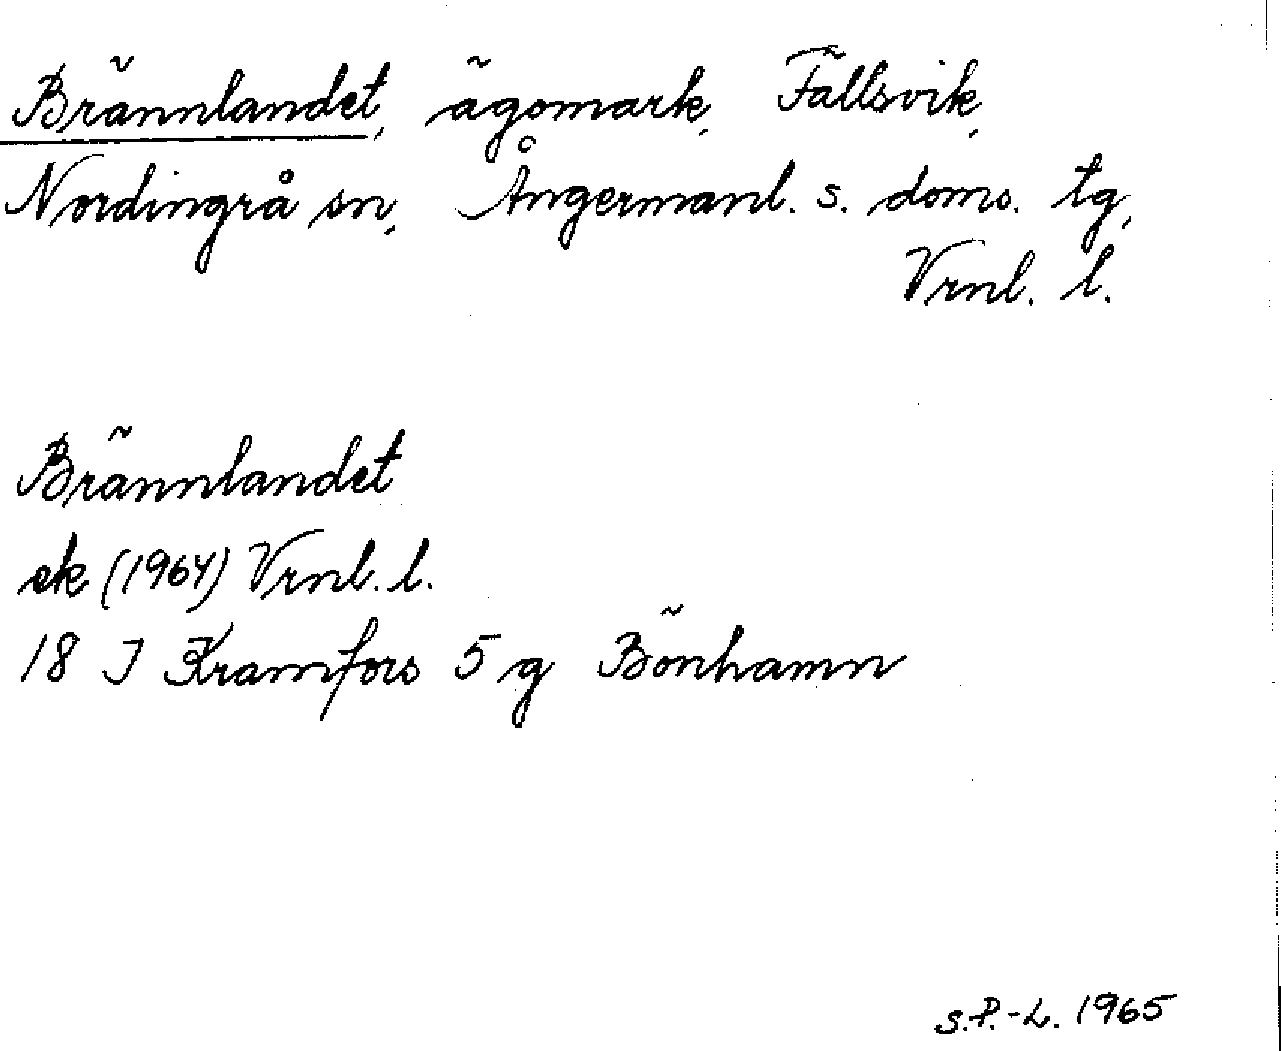 Brännlandet, ägomark, Fällsvik,
Nordingrå sn, Ångermanl. s. doms. tg,
Vrnl. l.
Brännlandet
ek (1964) Vrnl. l.
18 J Kramfors 5 g Bönhamn
S.P.-L. 1965